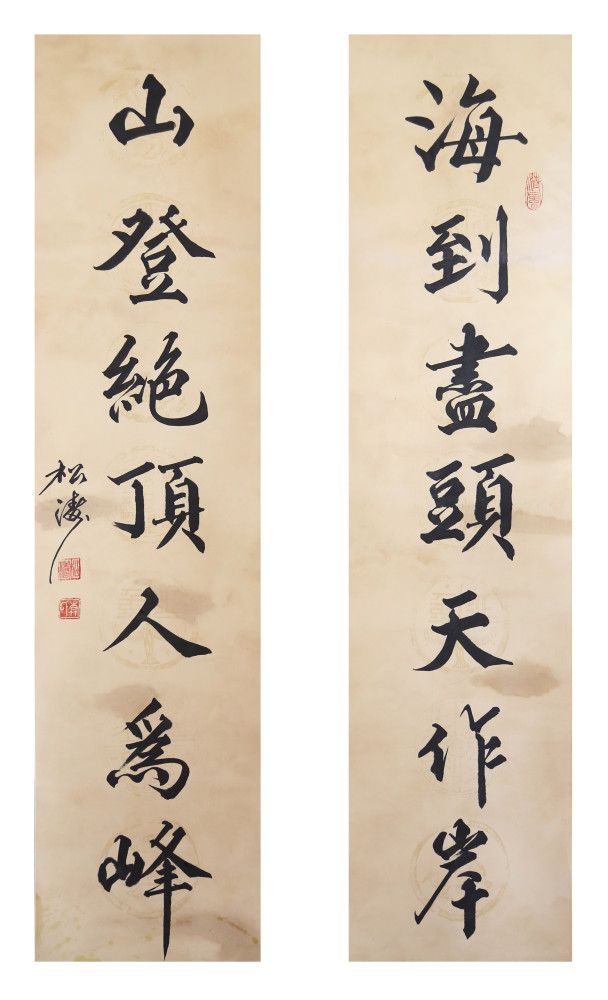 海到盡頭天作岸
山登絶頂人為峰
松濤